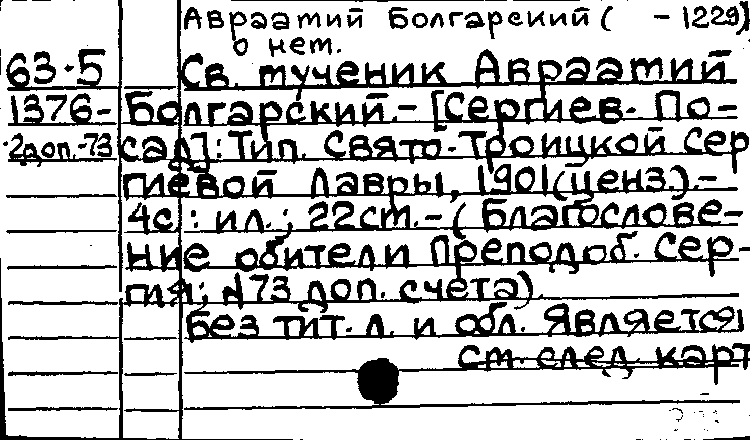 Авраамий Болгарский ( -1229)
о нем.
63-5 Св. мученик Авраамий
1376- Болгарский.- [Сергиев- По-
2доп.-73 сад]: Тип. Свято-Троицкой Сер
гиевой Лавры, 1901(ценз.).-
4с.: ил.; 22см.- ( Благослове-
ние обители Преподоб. Сер-
гия; №73 доп. счета).
Без тит. л. и обл. Является
см. след. карт